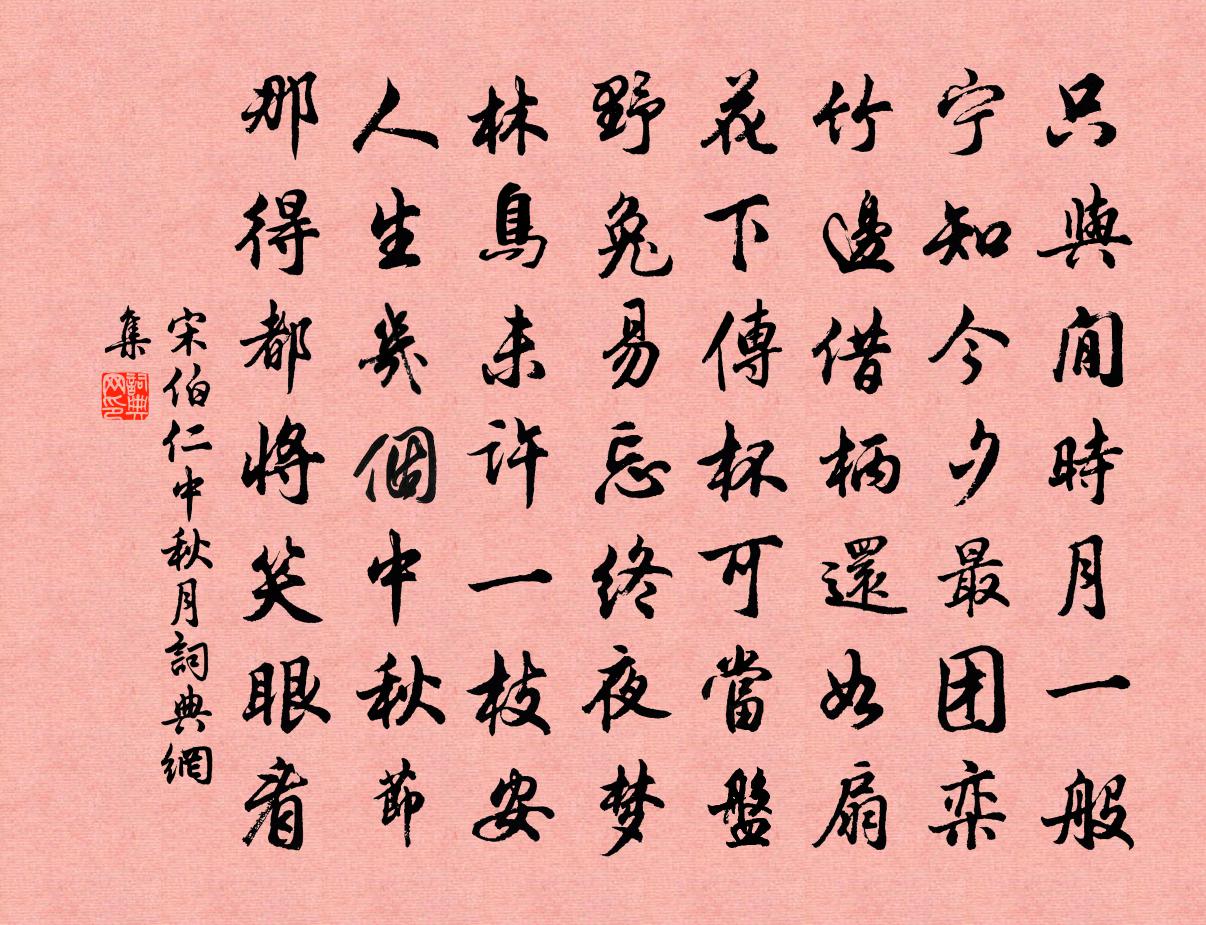 只與閒時月一般
宁知今夕最团栾
竹邊借柄還如扇
花下傳杯可當盤
野兔易忘終夜梦
林鳥未許一枝安
人生幾個中秋節
那得都將笑眼看
宋伯仁中秋月詞典網
集
詞典网印